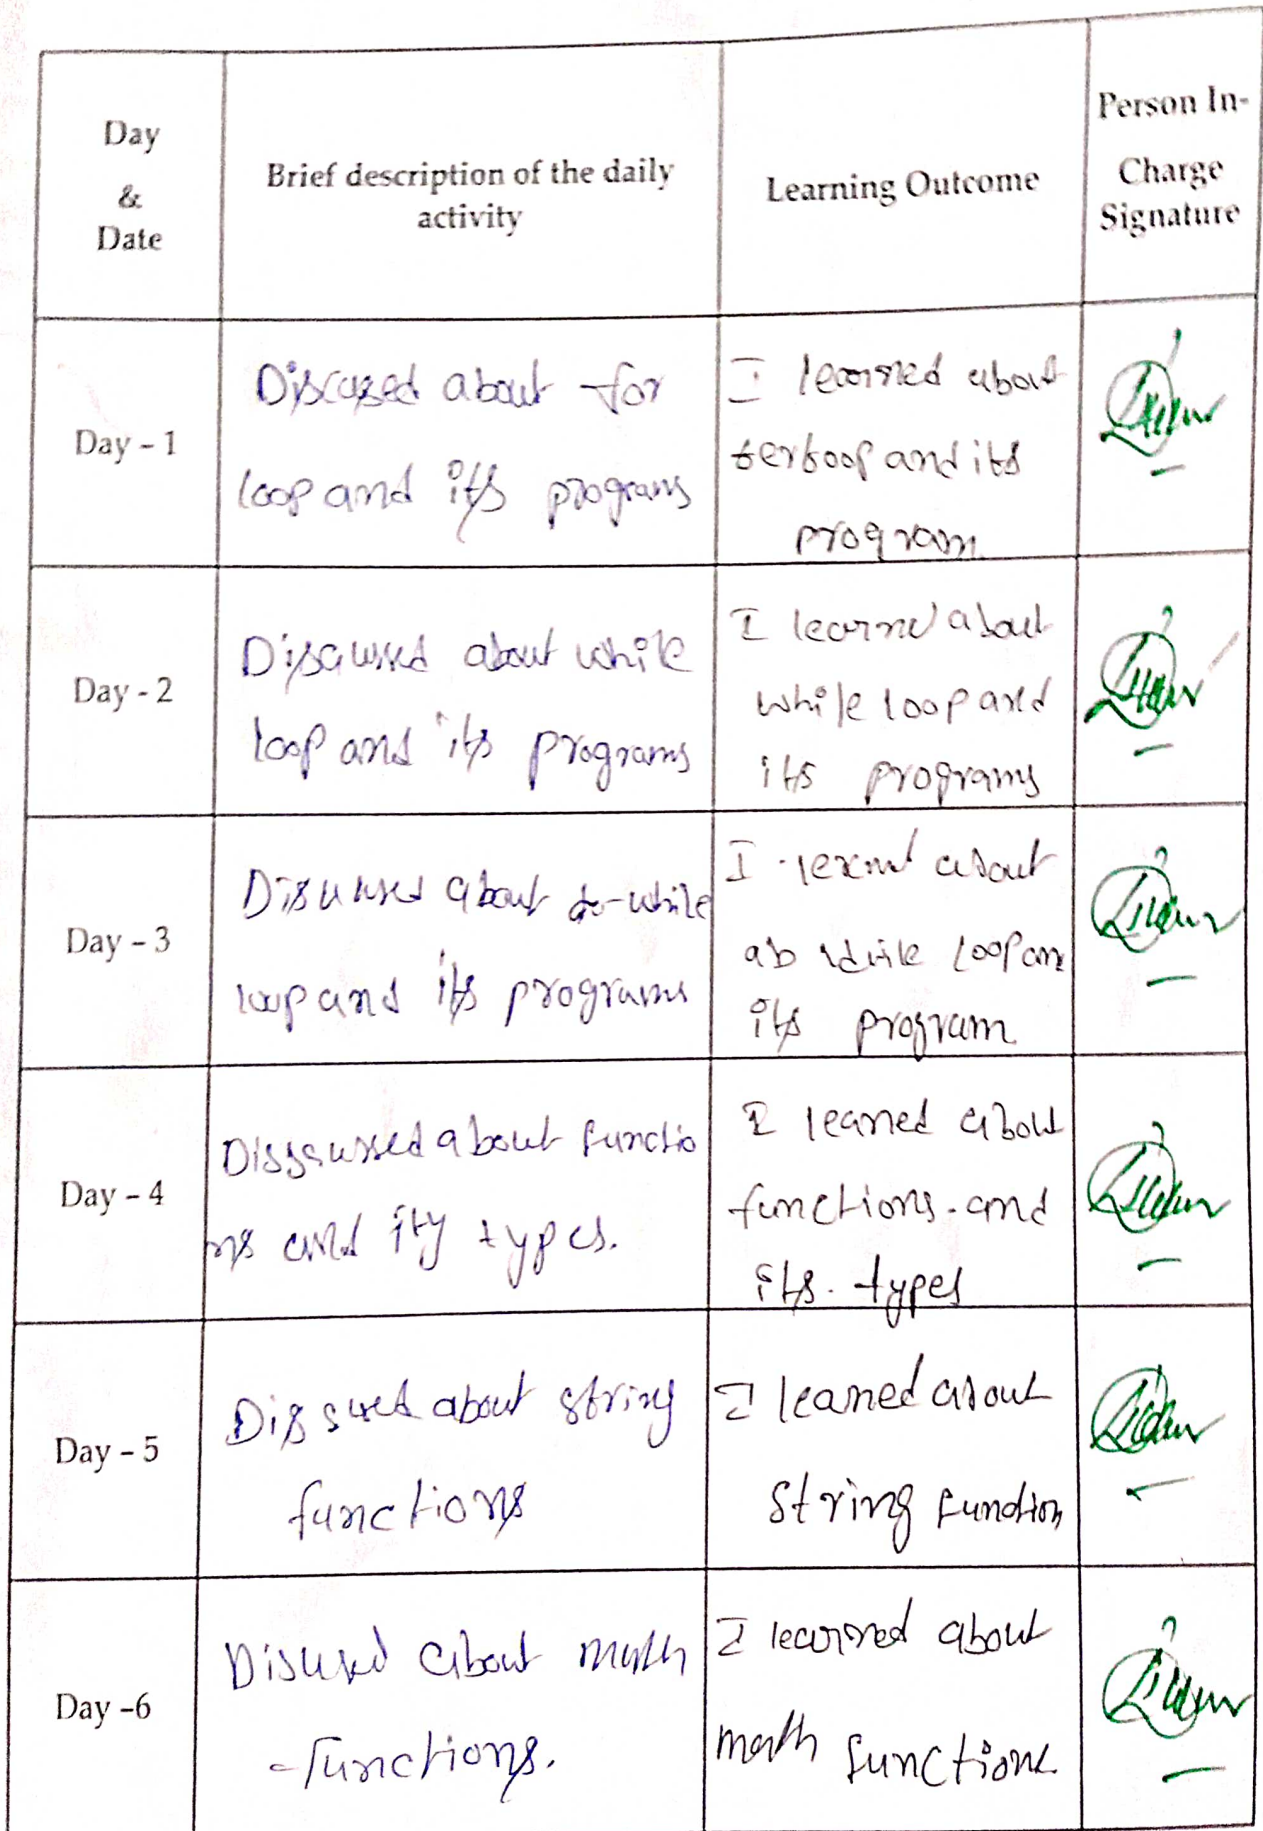 Day
&
Date
Brief description of the daily
activity
Learning Outcome
Person In-
Charge
Signature
Day - 1
Discused about for
loop and its programs
I learned about
and its
program
Day - 2
Discussed about while
loop and its programs
I learned about
while loop and
its programs
Day - 3
Disussed about do-while
loop and its programs
I about
while loop an
its program
Day - 4
Disscussed about functio
ns and its types.
I leaned about
functions and
its types
Day - 5
Dissused about string
functions
I leaned about
string function
Day -6
Disused about math
functions.
I learned about
math functions